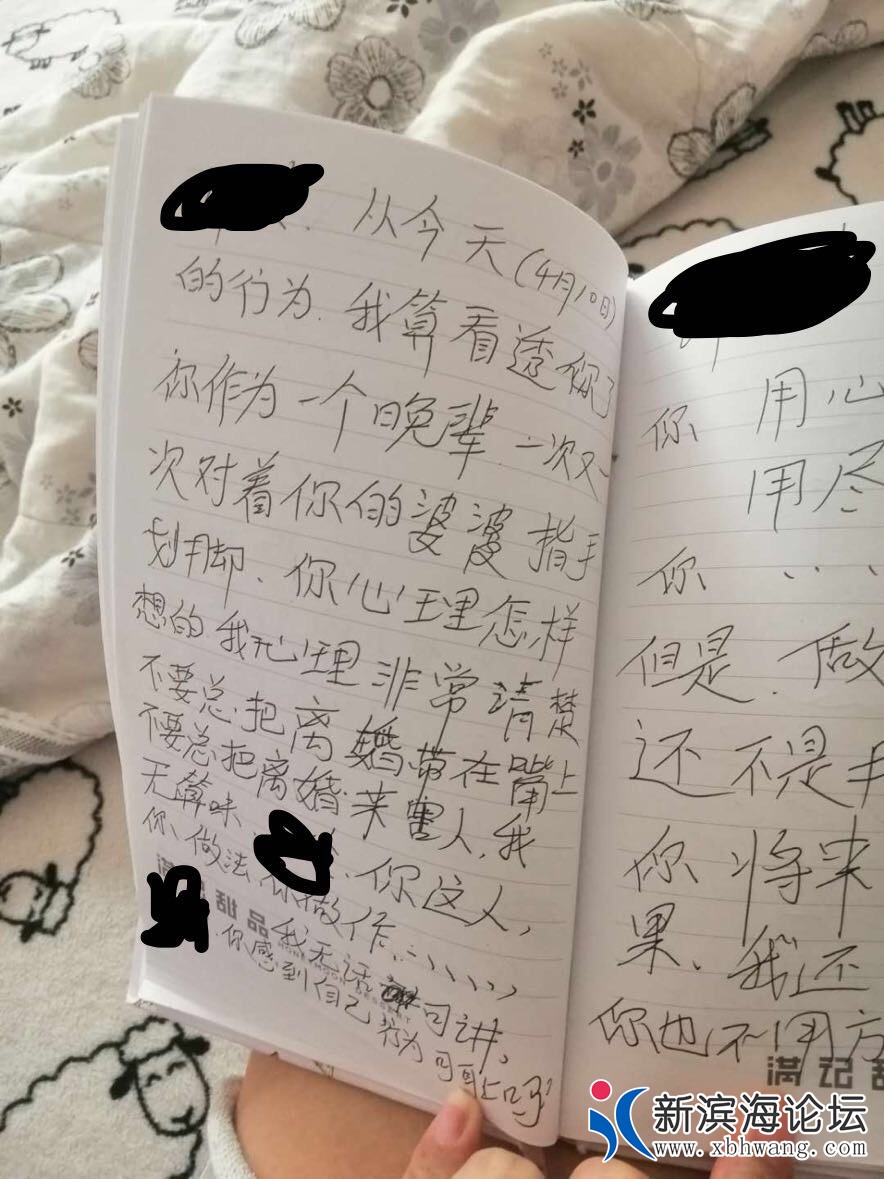 从今天(4月10日)
的行为.我算看透你了
你作为一个晚辈.一次又一
次对着你的婆婆指手
划脚、你心理怎样
想的.我心理非常清楚
不要总把离婚带在嘴上
不要总把离婚.来害人,我
无
你、你这人,
你、做法你做作、、、、、、
我无话可讲,
你感到自己行为可耻吗
满记甜品
你 用心
用尽
你、、、
但是.做
还不是
你将来
果、我还
你也不用
满记甜
新滨海论坛
www.xbhwang.com